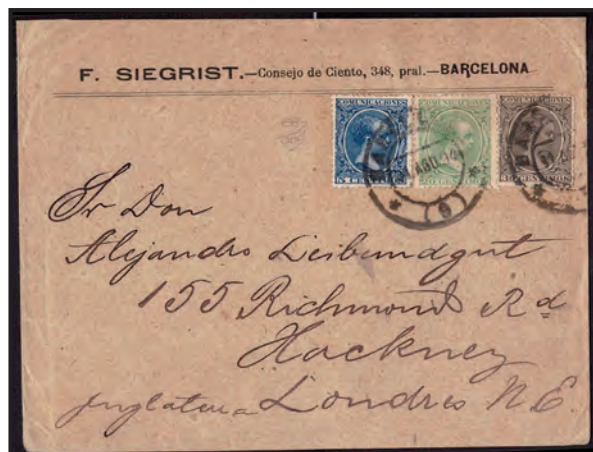 F. SIEGRIST.—Consejo de Ciento, 348, pral.—BARCELONA
COMUNICACIONES COMUNICACIONES COMUNICACIONES
AGO
(6)
Sr Don
Alejandro Leibundgut
155 Richmond Rd
Hackney
Inglaterra Londres N.E.